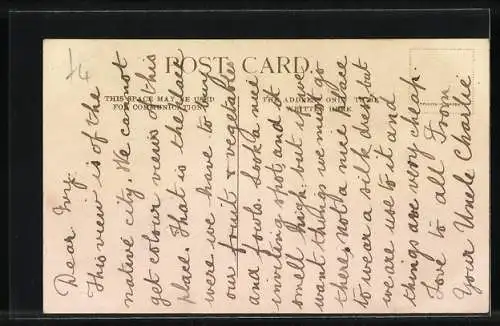 POST CARD
THIS SPACE MAY BE USED
FOR COMMUNICATION
THE ADDRESS ONLY TO BE
WRITTEN HERE
Dear Ivy.
This view is of the
native city. We cannot
get colour views of this
place. That is the place
were we have to buy
our fruit & vegetables
and fowls. Looks a nice
inviting spot, and it
smell high. but if we
want things we must go
there, not a nice place
to wear a silk dress, but
we are use to it and
things are very cheap.
Love to all From
Your Uncle Charlie